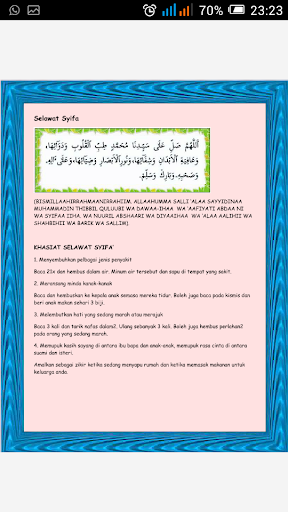 70% 23:23
Selawat Syifa
اَللّٰهُمَّ صَلِّ عَلَى سَيِّدِنَا مُحَمَّدٍ طِبِّ الْقُلُوْبِ وَدَوَائِهَا،
وَعَافِيَةِ الْأَبْدَانِ وَشِفَائِهَا، وَنُوْرِ الْأَبْصَارِ وَضِيَائِهَا، وَعَلَى آلِهِ
وَصَحْبِهِ وَبَارِكْ وَسَلِّمْ.
(BISMILLAAHIRRAHMAANIRRAHIIM. ALLAAHUMMA SALLI 'ALAA SAYYIDINAA
MUHAMMADIN THIBBIL QULUUBI WA DAWAA-IHAA WA 'AAFIYATI ABDAA NI
WA SYIFAA IHA. WA NUURIL ABSHAARI WA DIYAAIHAA WA 'ALAA AALIHII WA
SHAHBIHII WA BARIK WA SALLIM).
KHASIAT SELAWAT SYIFA'
1. Menyembuhkan pelbagai jenis penyakit
Baca 21x dan hembus dalam air. Minum air tersebut dan sapu di tempat yang sakit.
2. Meransang minda kanak-kanak
Baca dan hembuskan ke kepala anak semasa mereka tidur. Boleh juga baca pada kismis dan
beri anak makan sehari 3 biji.
3. Melembutkan hati yang sedang marah atau merajuk
Baca 3 kali dan tarik nafas dalam2. Ulang sebanyak 3 kali. Boleh juga hembus perlahan2
pada orang yang sedang marah.
4. Memupuk kasih sayang di antara ibu bapa dan anak-anak, memupuk rasa cinta di antara
suami dan isteri.
Amalkan sebagai zikir ketika sedang menyapu rumah dan ketika memasak makanan untuk
keluarga anda.